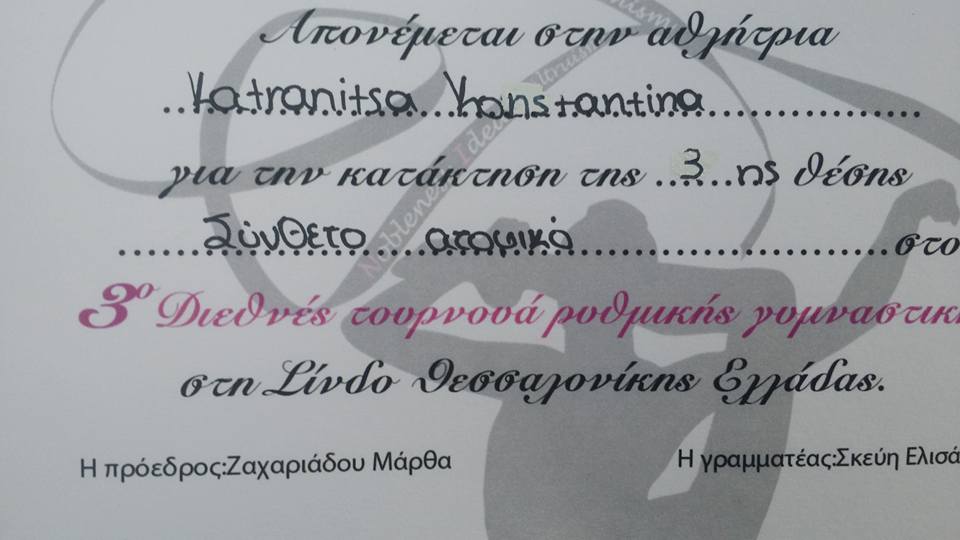 Απονέμεται στην αθλήτρια
..Katranitsa...Konstantina.................
για την κατάκτηση της ..3...ης θέσης
......Σύνθετο ατομικό..........................στο
3ο Διεθνές τουρνουά ρυθμικής γυμναστικ
στη Σίνδο Θεσσαλονίκης Ελλάδας.
Η πρόεδρος:Ζαχαριάδου Μάρθα
Η γραμματέας:Σκεύη Ελισά